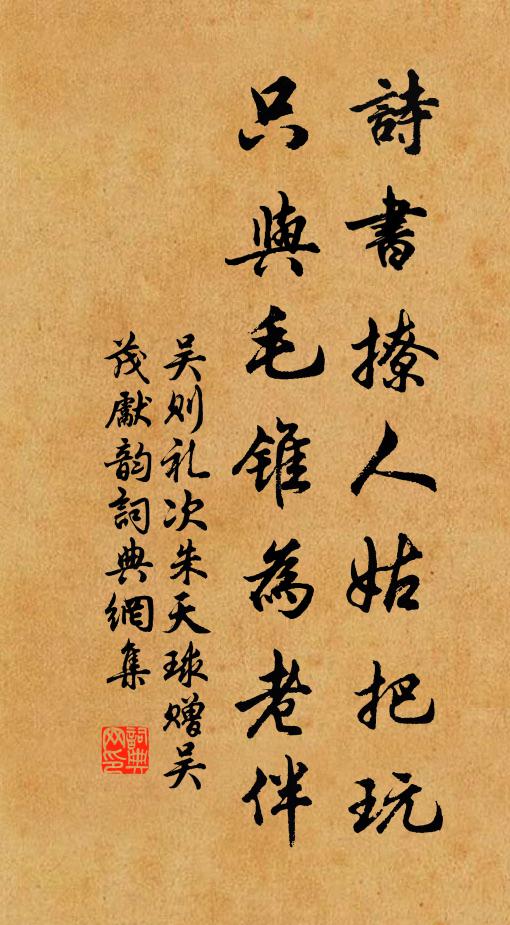 詩書撩人姑把玩
只與毛錐為老伴
吴则礼次朱天球赠吴
茂獻韵詞典網集
詞典
网印